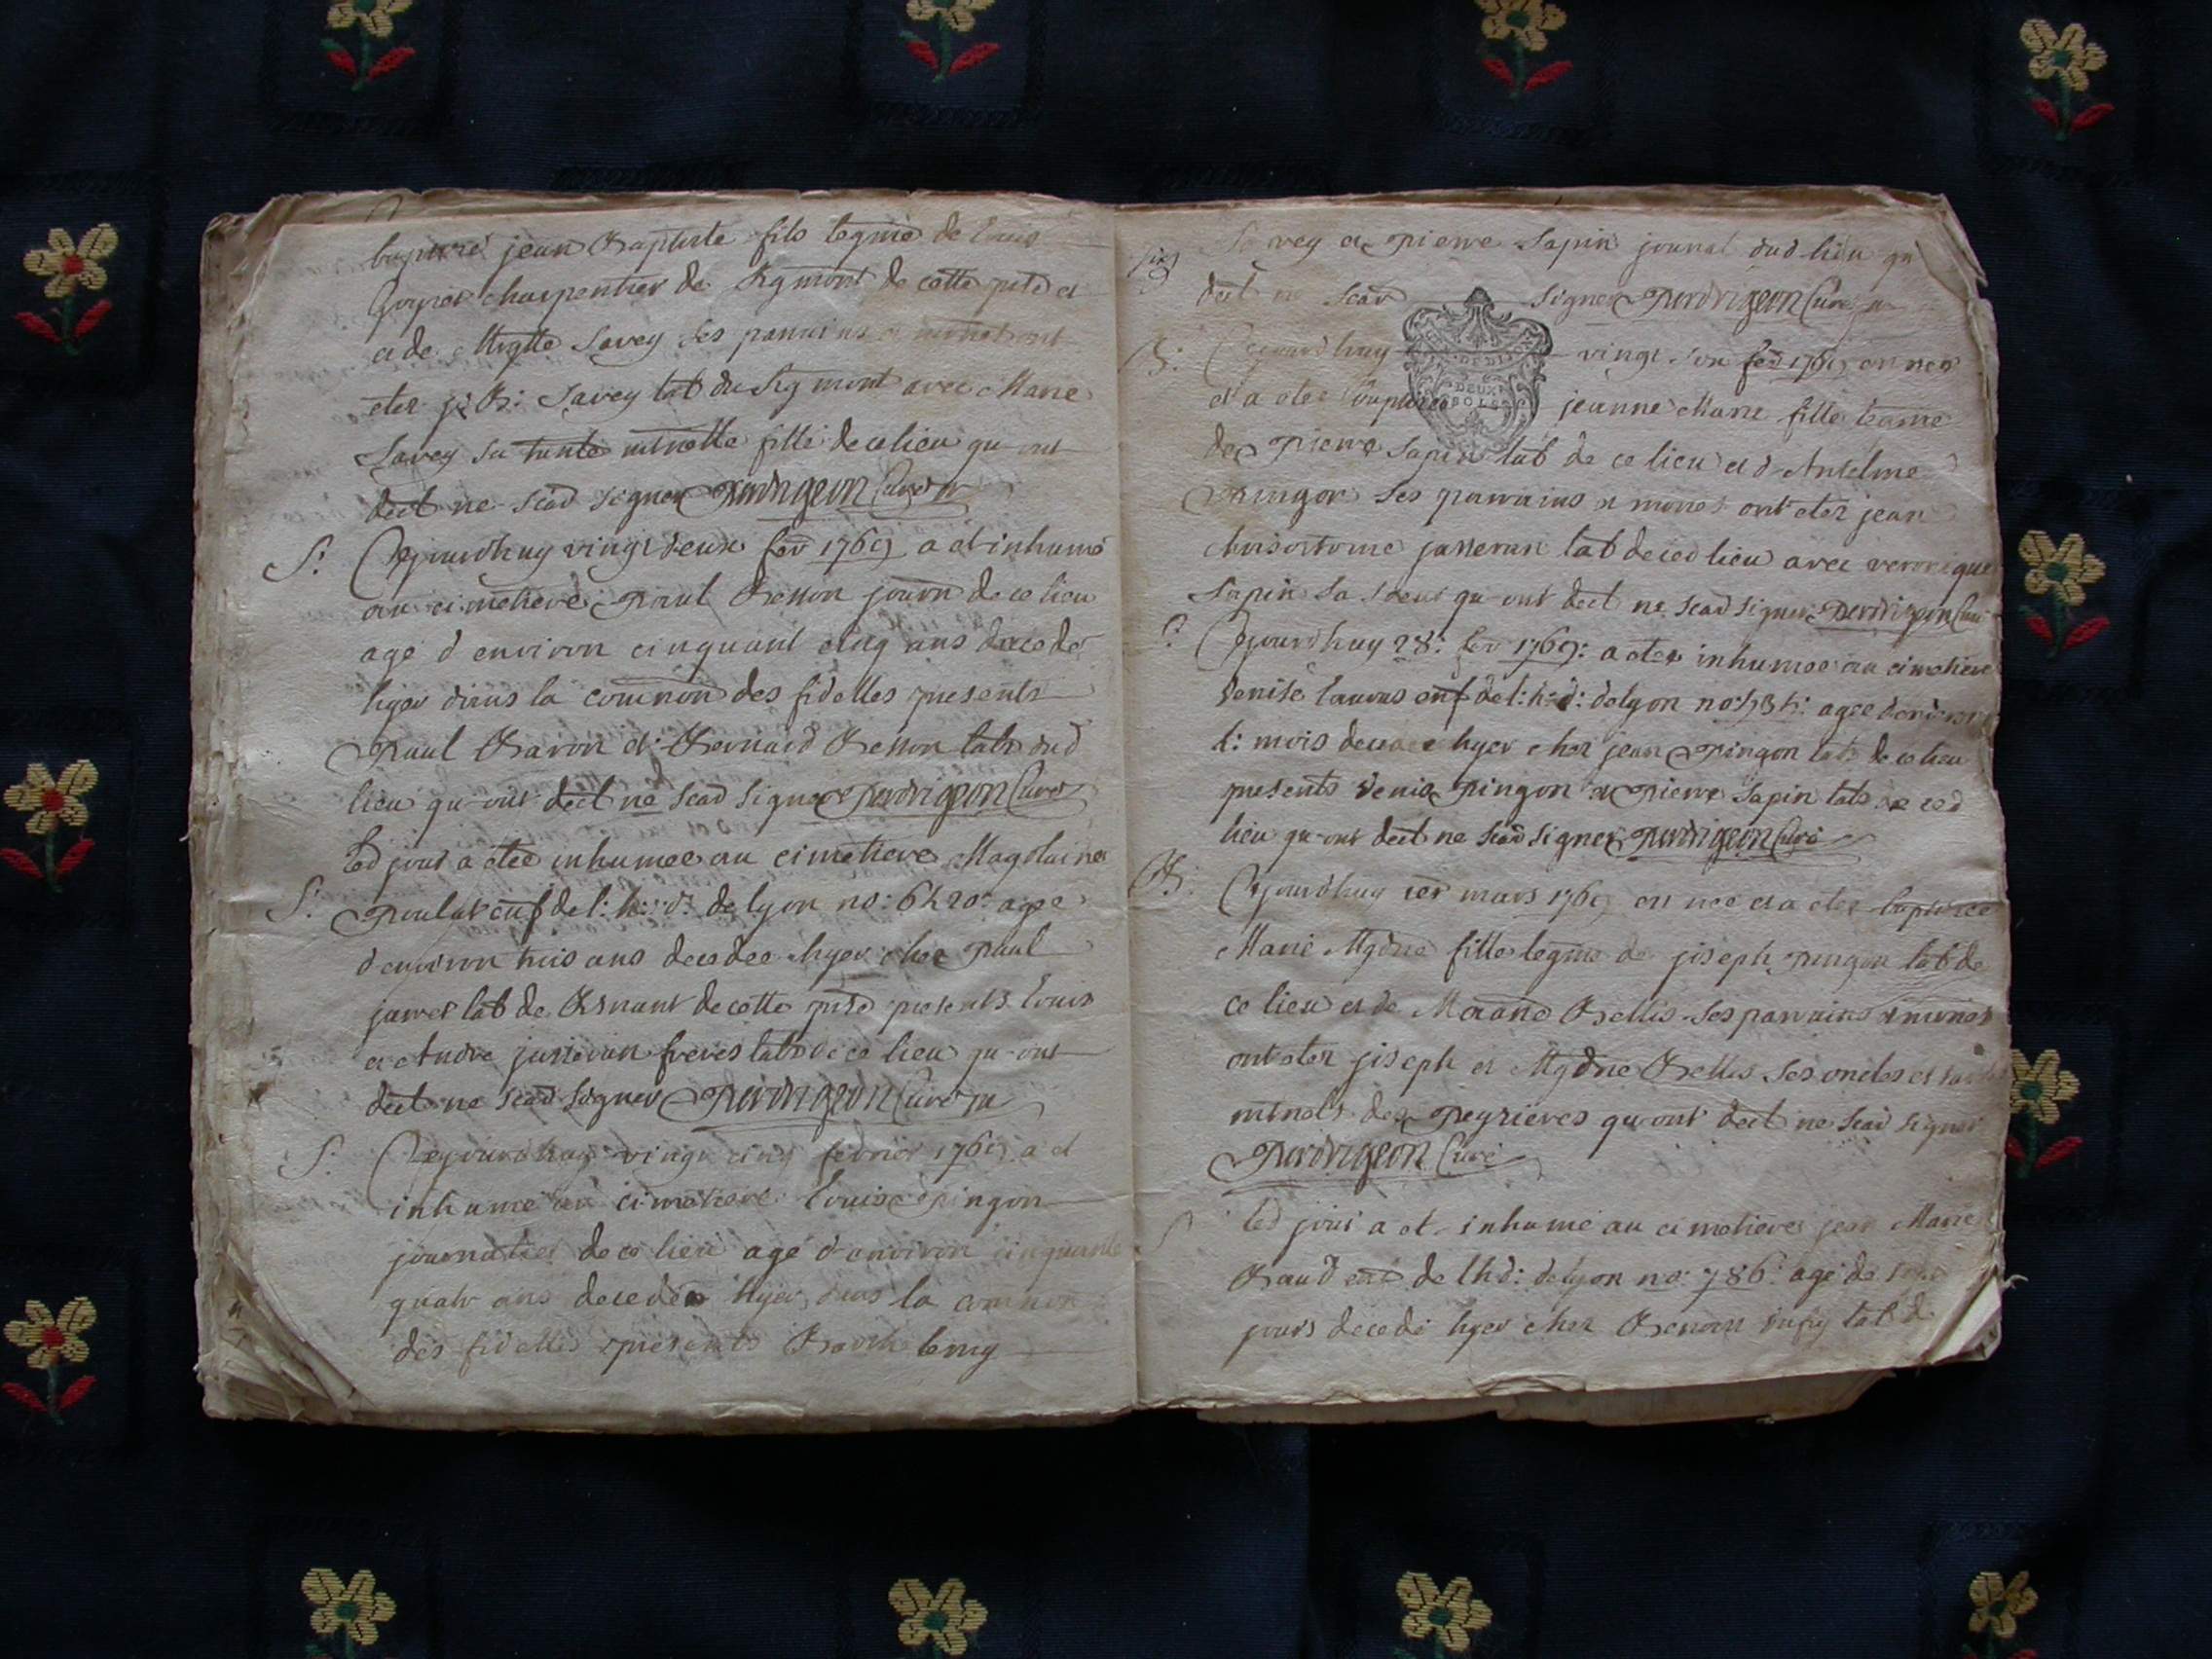 baptizé jean Baptiste fils legme de Louis
charpentier de Rigmont de cette psse et
et de Mgtte Savey ses parrains et
eter j: B: Savey lab du Rigmont avec Marie
Savey sa tante fille de ce lieu qu ont
declt ne scad signer Perdrigeon Curé
S: Cejourdhuy vingt deux fev 1769 a et inhumé
au cimetiere Paul Besson journ de ce lieu
agé d environ cinquant cinq ans decedé
hyer dans la commion des fidelles presents
Paul Baron et Bernard Besson labs dud
lieu qu ont declt ne scad signer Perdrigeon Curé
Led jour a etee inhumee au cimetiere Magdlaine
S: Poulat enf de l: h: d: de lyon no: 6420: agee
d environ trois ans decedee hyer chez paul
lab de Bsnant de cette psse presents Louis
et Andre jasseran freres labs de ce lieu qu ont
declt ne scad signer Perdrigeon Curé
S: Cejourdhuy vingt cinq fevrier 1769 a et
inhumé au cimetiere Louis Pingon
journalier de ce lieu agé d environ cinquante
quatr ans decedé hyer dans la commion
des fidelles presents Barthelemy
Savey et Pierre Sapin journal dud lieu qu
declt ne scad signer Perdrigeon Curé
B: Cejourdhuy vingt fev 1769 en nee
DEUX SOLS
et a etee baptizee jeanne Marie fille legme
de Pierre Sapin lab de ce lieu et d Anselme
Pingon ses parrains et mores ont eter jean
chrisostome jasseran lab de ced lieu avec veronique
Sapin sa soeur qu ont declt ne scad signer Perdrigeon Curé
S Cejourdhuy 28: fev 1769: a etee inhumee au cimetiere
denise enf de l: h: d: de lyon no: agee denviron
mois decedee hyer chez jean Pingon lab: de ce lieu
presents denis Pingon et Pierre Sapin labs de ced
lieu qu ont declt ne scad signer Perdrigeon Curé
B: Cejourdhuy ier mars 1769 en nee et a etee baptizee
Marie Mgdne fille legme de joseph Pingon lab de
ce lieu et de Bellis ses parrains et mores
ont eter joseph et Mgdne Bellis ses oncles et
de Peyzieres qu ont declt ne scad signer
Perdrigeon Curé
S Led jour a et inhumé au cimetiere jean Marie
Baud enf de lhd: de lyon no: 786: agé de
jours decedé hyer chez lab de